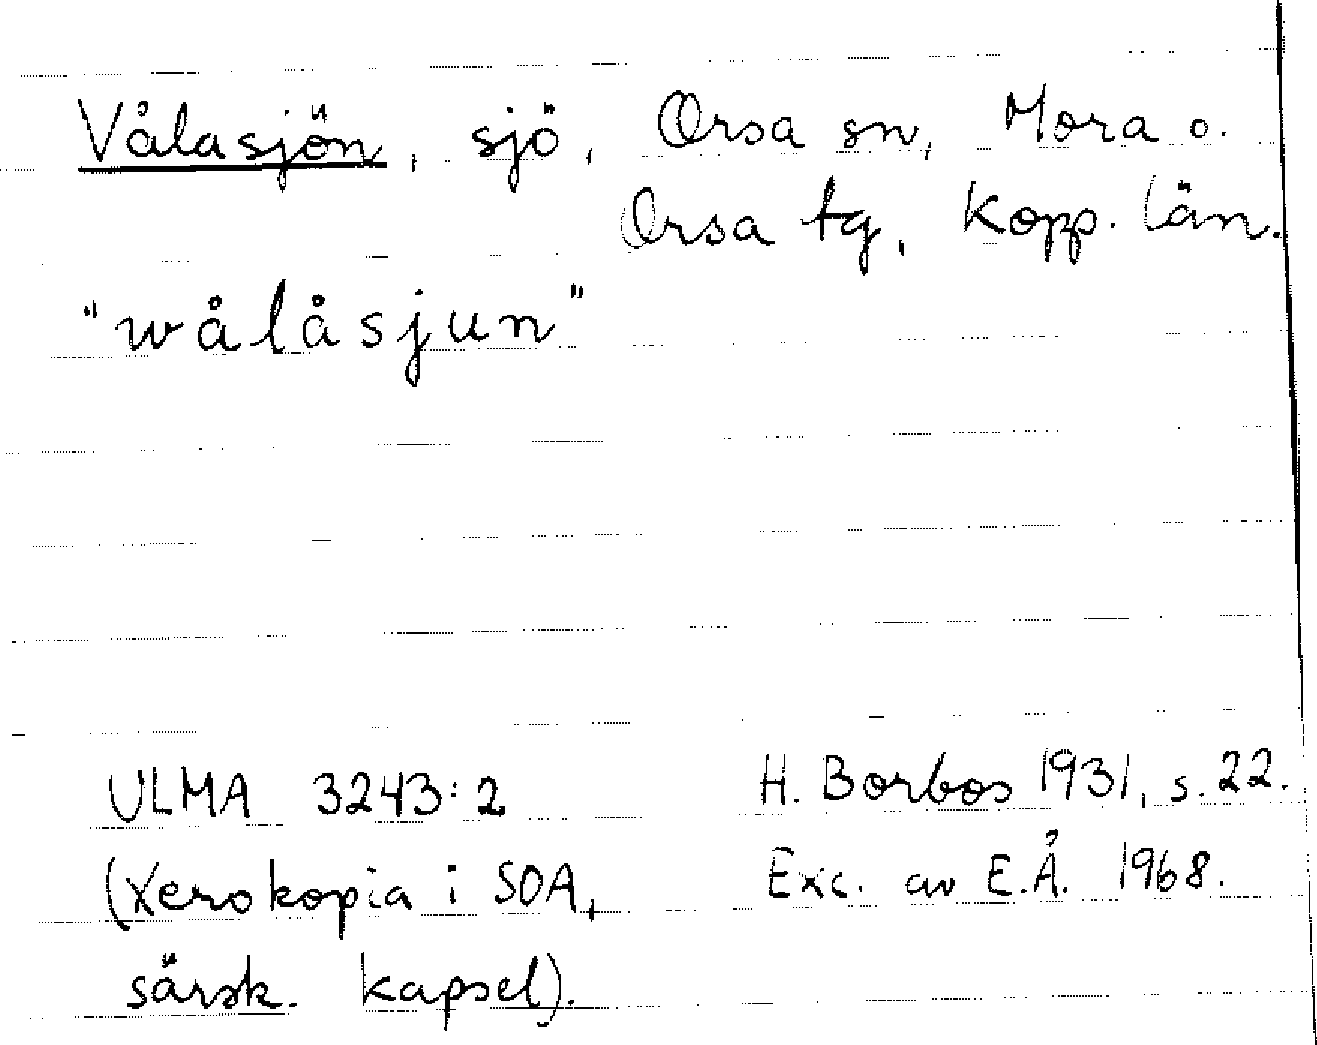 Vålasjön, sjö, Orsa sn, Mora o.
Orsa tg, Kopp. län.
"wålåsjun"
ULMA 3243:2
(Xerokopia i SOA,
särsk. kapsel).
H. Borbos 1931, s. 22.
Exc. av E.Å. 1968.